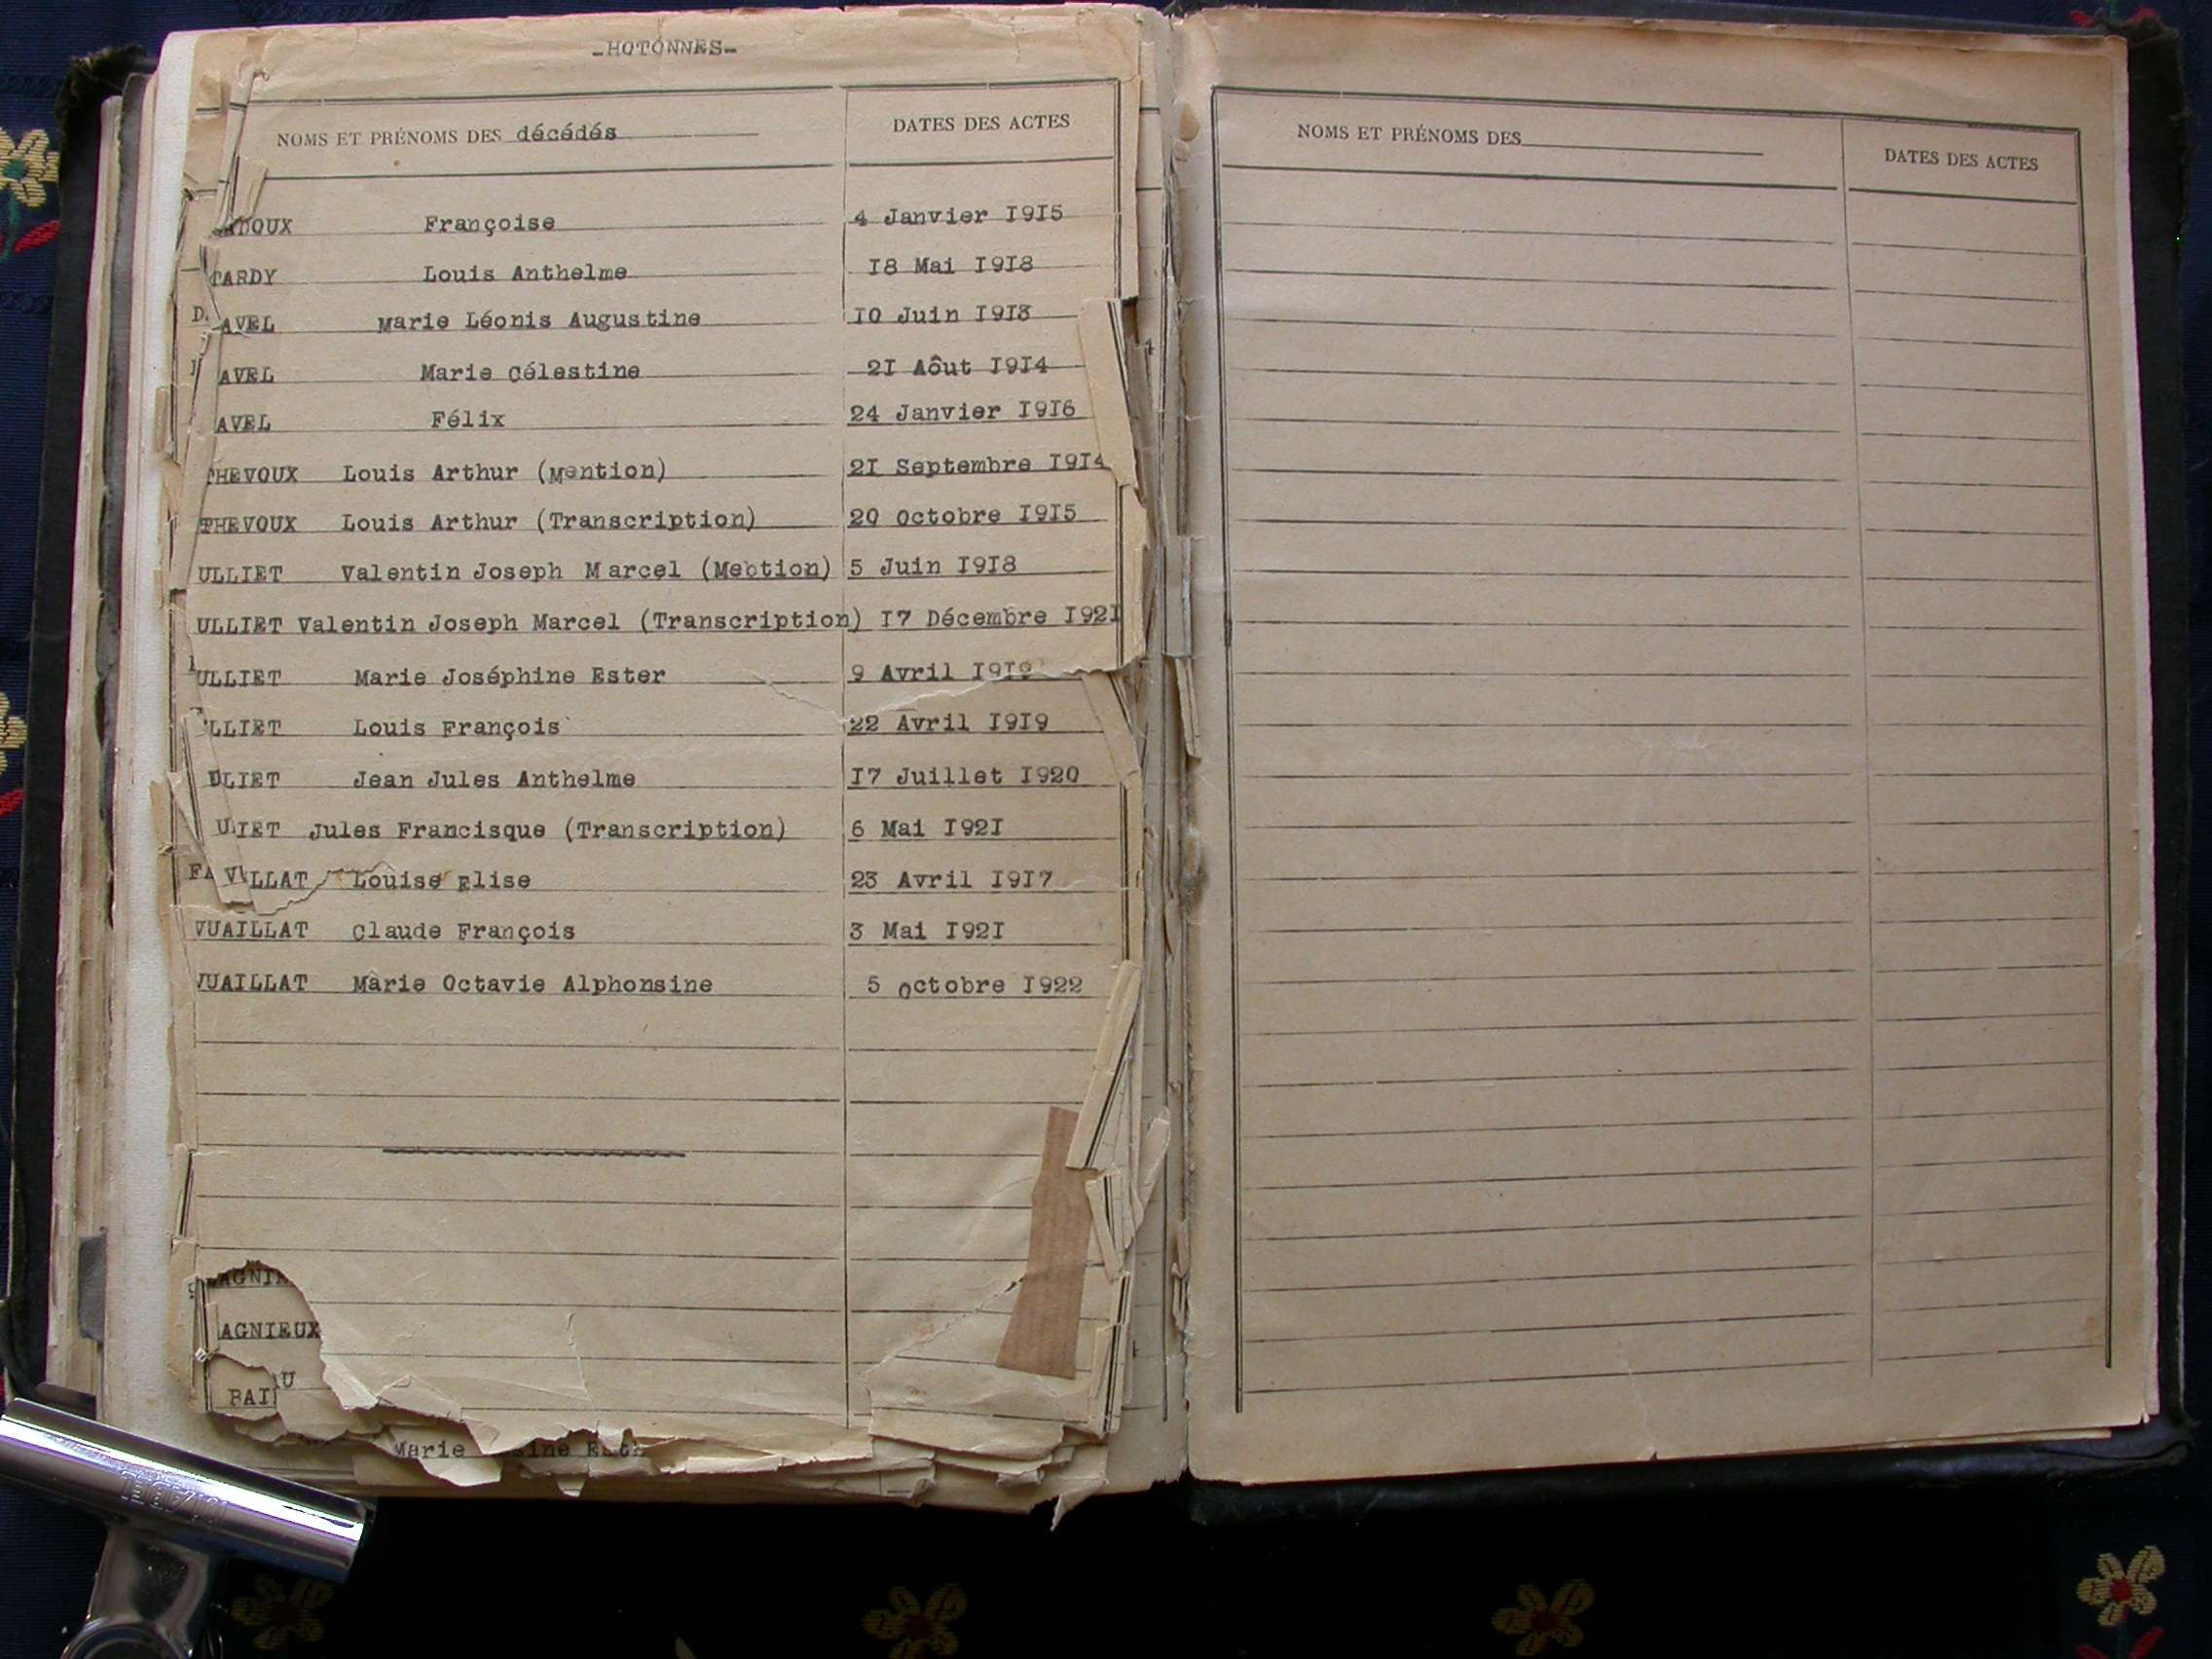 -HOTONNES-
NOMS ET PRÉNOMS DES décédés DATES DES ACTES
DOUX Françoise 4 Janvier 1915
TARDY Louis Anthelme 18 Mai 1918
AVEL Marie Léonis Augustine 10 Juin 1913
AVEL Marie Célestine 21 Aôut 1914
AVEL Félix 24 Janvier 1916
THEVOUX Louis Arthur (Mention) 21 Septembre 1914
THEVOUX Louis Arthur (Transcription) 20 Octobre 1915
ULLIET Valentin Joseph Marcel (Mebtion) 5 Juin 1918
ULLIET Valentin Joseph Marcel (Transcription) 17 Décembre 1921
ULLIET Marie Joséphine Ester 9 Avril
LLIET Louis François 22 Avril 1919
LIET Jean Jules Anthelme 17 Juillet 1920
IET Jules Francisque (Transcription) 6 Mai 1921
LLAT Louise Elise 23 Avril 1917
VUAILLAT Claude François 3 Mai 1921
VUAILLAT Marie Octavie Alphonsine 5 Octobre 1922
AGNIEUX
BAI
Marie
NOMS ET PRÉNOMS DES DATES DES ACTES